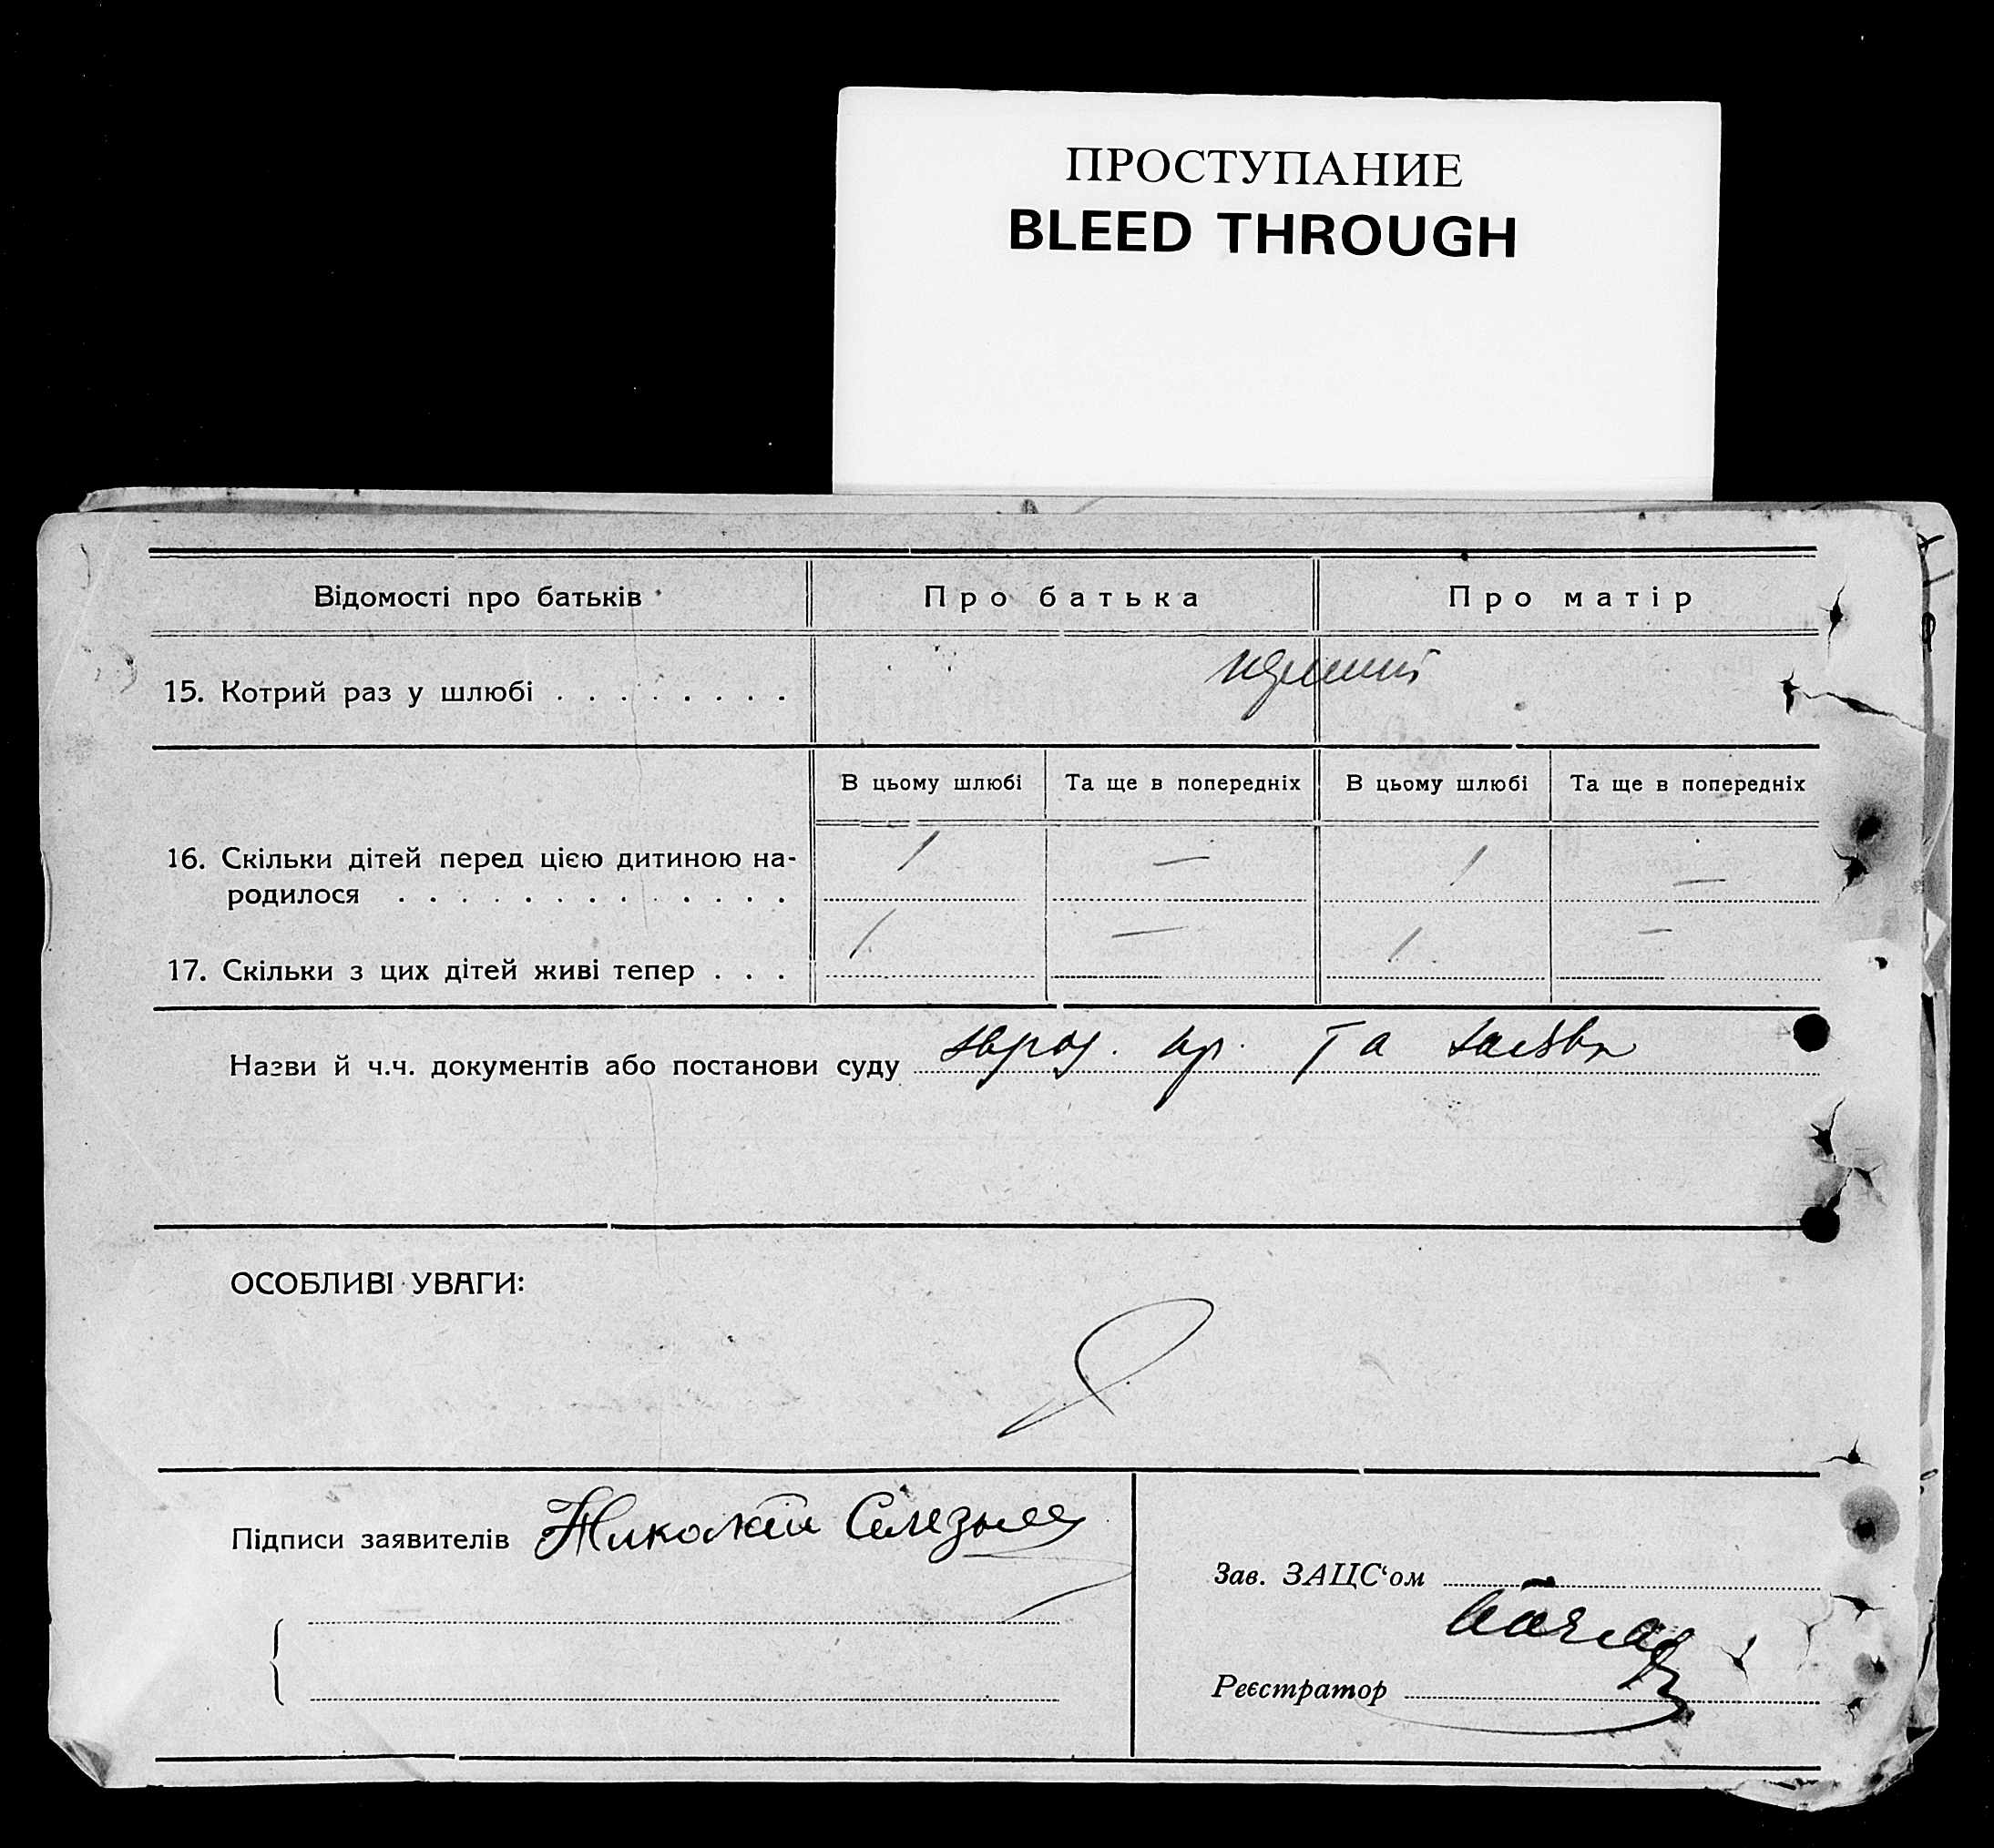 ПРОСТУПАНИЕ
BLEED THROUGH
Відомості про батьків
Про батька
Про матір
15. Котрий раз у шлюбі . . . . . . . .
В цьому шлюбі
Та ще в попередніх
В цьому шлюбі
Та ще в попередніх
16. Скільки дітей перед цією дитиною на-
родилося . . . . . . . . . . . . .
1 — 1 —
17. Скільки з цих дітей живі тепер . . .
1 — 1 —
Назви й ч.ч. документів або постанови суду та
ОСОБЛИВІ УВАГИ:
Підписи заявителів Николай
Зав. ЗАЦС‘ом
Реєстратор